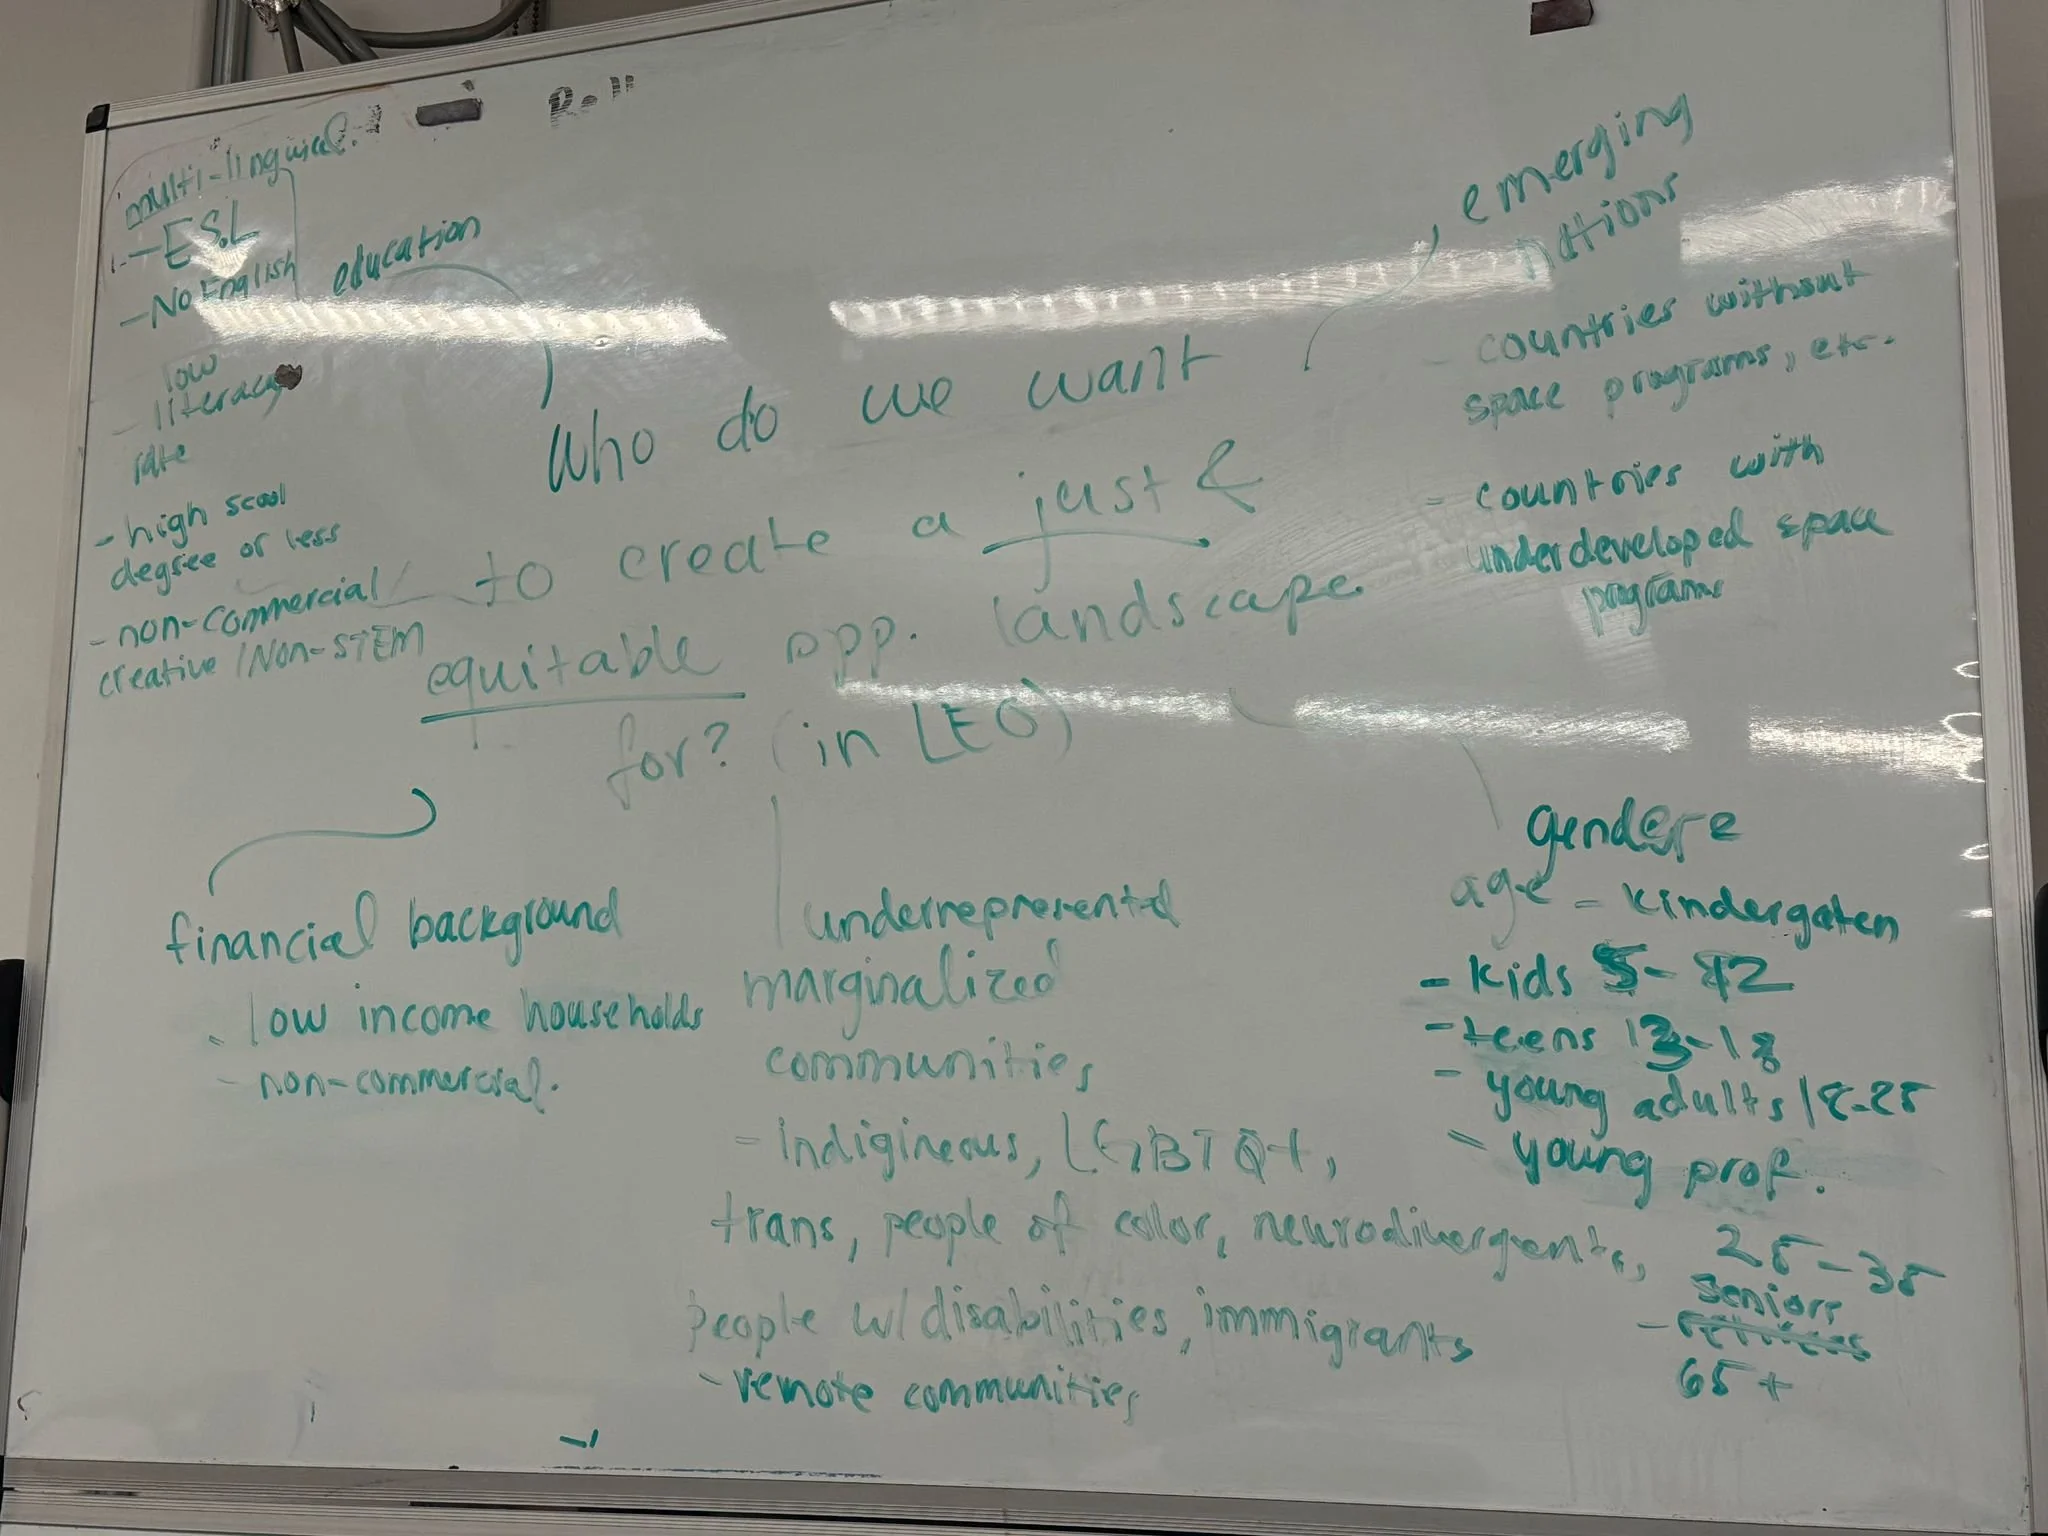 multi-lingual.
- ESL
- No English
education
- low
literacy
rate
- high scool
degree or less
- non-commercial/
creative /Non-STEM
emerging
nations
- countries without
space programs, etc.
- countries with
underdeveloped space
programs
Who do we want
to create a just &
equitable opp. landscape
for? (in LEO)
financial background
- low income households
- non-commercial.
underrepresented
marginalized
communities
- indigineous, LGBTQ+,
trans, people of color, neurodivergents,
people w/ disabilities, immigrants
- remote communities
age - kindergaten
- kids 5-12
- teens 13-18
- young adults 18-25
- young prof.
25-35
seniors
65+